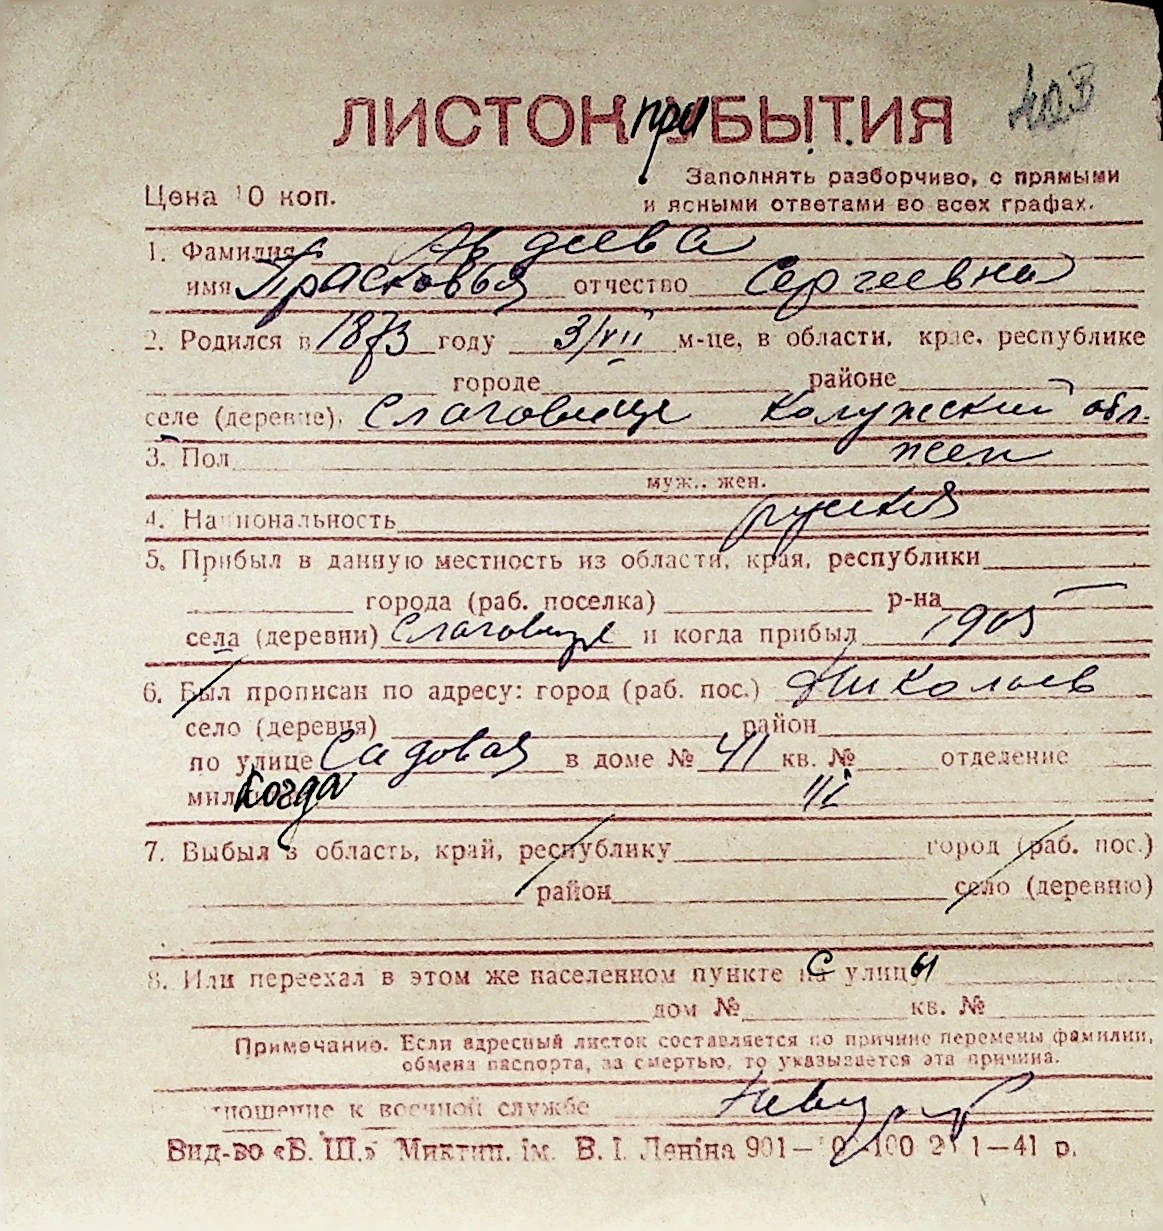 ЛИСТОК при УБЫТИЯ
Цена 10 коп.
Заполнять разборчиво, с прямыми
и ясными ответами во всех графах.
1. Фамилия Авдеева
имя Прасковья отчество Сергеевна
2. Родился в 1873 году 3/VII м-це, в области, крае, республике
городе районе
селе (деревне), Слаговище Калужский обл.
3. Пол жен
муж., жен.
4. Национальность руская
5. Прибыл в данную местность из области, края, республики
города (раб. поселка) р-на
села (деревни) Слаговище и когда прибыл 1905
6. Был прописан по адресу: город (раб. пос.) Николаев
село (деревня) район
по улице Садовая в доме № 41 кв. № отделение
Когда
7. Выбыл в область, край, республику город (раб. пос.)
район село (деревню)
8. Или переехал в этом же населенном пункте с улицы
дом № кв. №
Примечание. Если адресный листок составляется по причине перемены фамилии,
обмена паспорта, за смертью, то указывается эта причина.
тношение к военной службе
Вид-во «Б. Ш.» Миктип. ім. В. І. Леніна 901— 1—41 р.